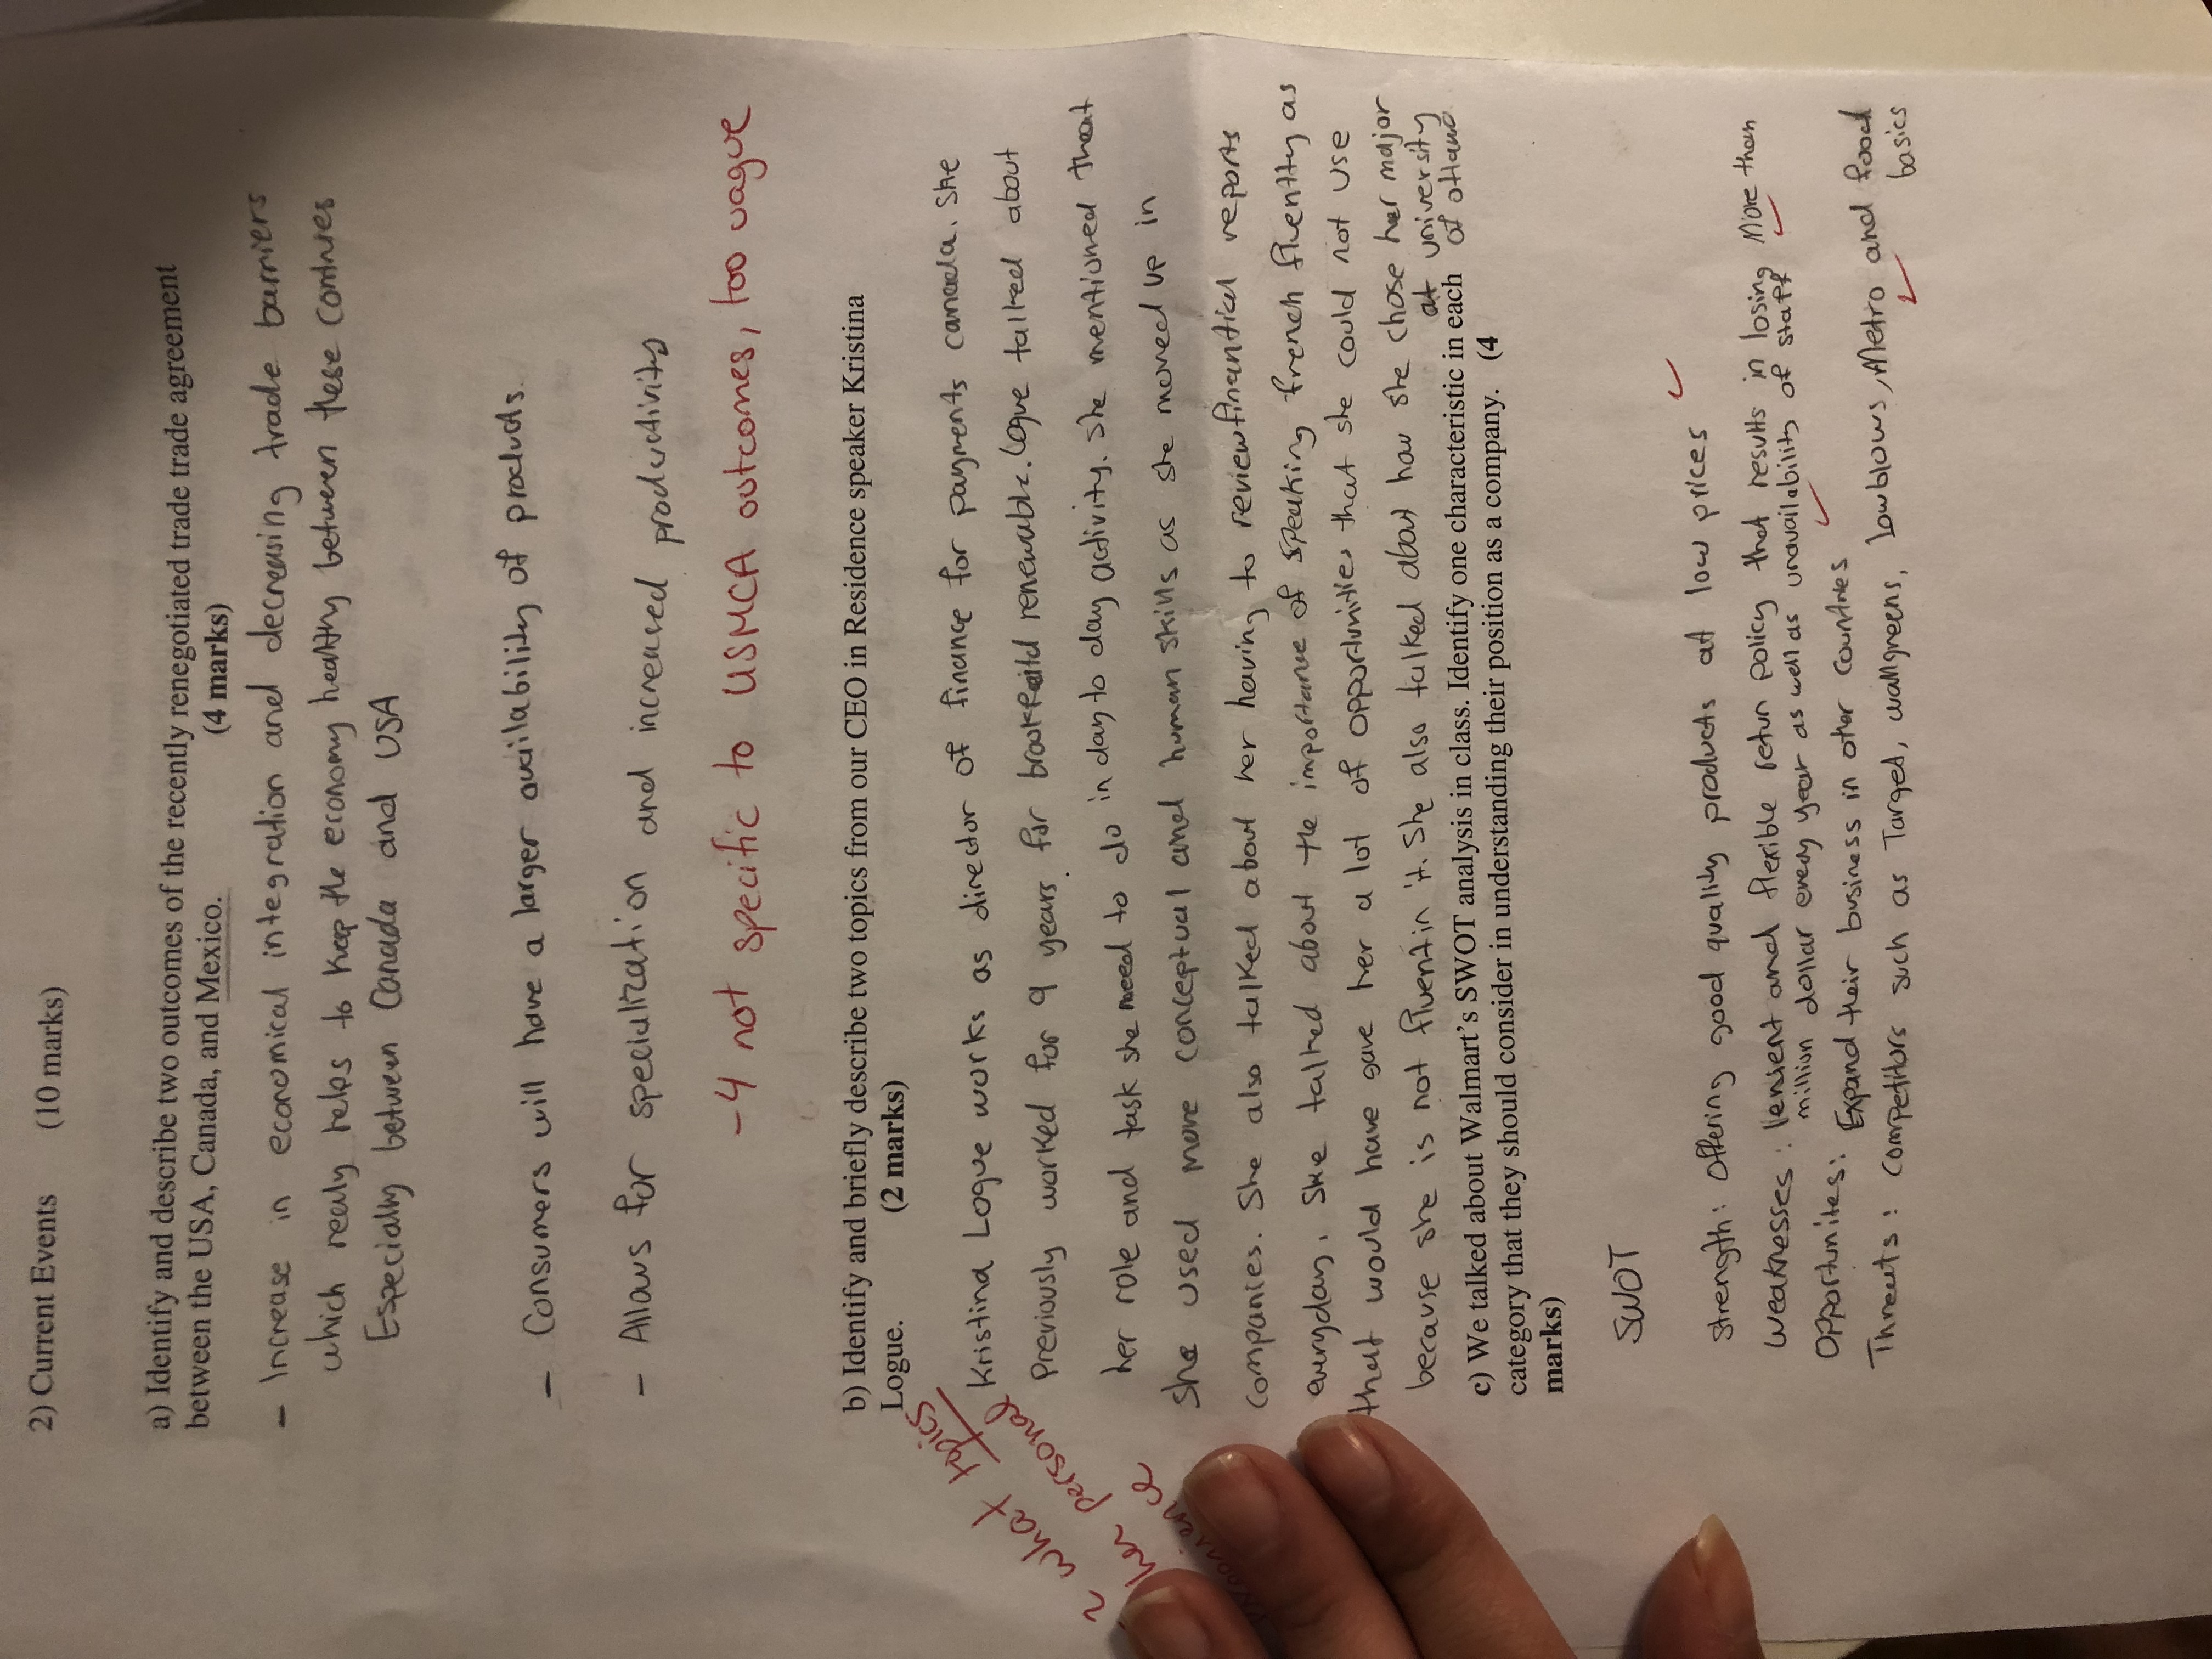 2) Current Events (10 marks)
a) Identify and describe two outcomes of the recently renegotiated trade trade agreement
between the USA, Canada, and Mexico. (4 marks)
- Increase in economical integration and decreasing trade barriers
which realy helps to keep the economy healthy between these contries
Especially between Canada and USA
- Consumers will have a larger avilability of products.
- Allows for specialization and increased productivity
-4 not specific to USMCA outcomes, too vague
b) Identify and briefly describe two topics from our CEO in Residence speaker Kristina
Logue. (2 marks)
~ what topics
her personal
Kristina Logue works as director of finance for payments canada. She
Previously worked for 9 years for renewable. Logue talked about
her role and task she need to do in day to day activity. She mentioned that
She used more conceptual and human skills as she moved up in
companies. She also talked about her having to review finantical reports
everyday. She talked about the importance of speaking french fluently as
that would have gave her a lot of opportunities that she could not use
because she is not fluent in it. She also talked about how she chose her major
at university
of ottawa
c) We talked about Walmart's SWOT analysis in class. Identify one characteristic in each
category that they should consider in understanding their position as a company. (4
marks)
SWOT
Strength: Offering good quality products at low prices
Weaknesses: lenient and flexible retun policy that results in losing More than
million dollar every year as well as unavailability of staff
Opportunities: Expand their business in other countries
Threats: Competitors such as Targed, wallgreens, Lowblows, Metro and food
basics